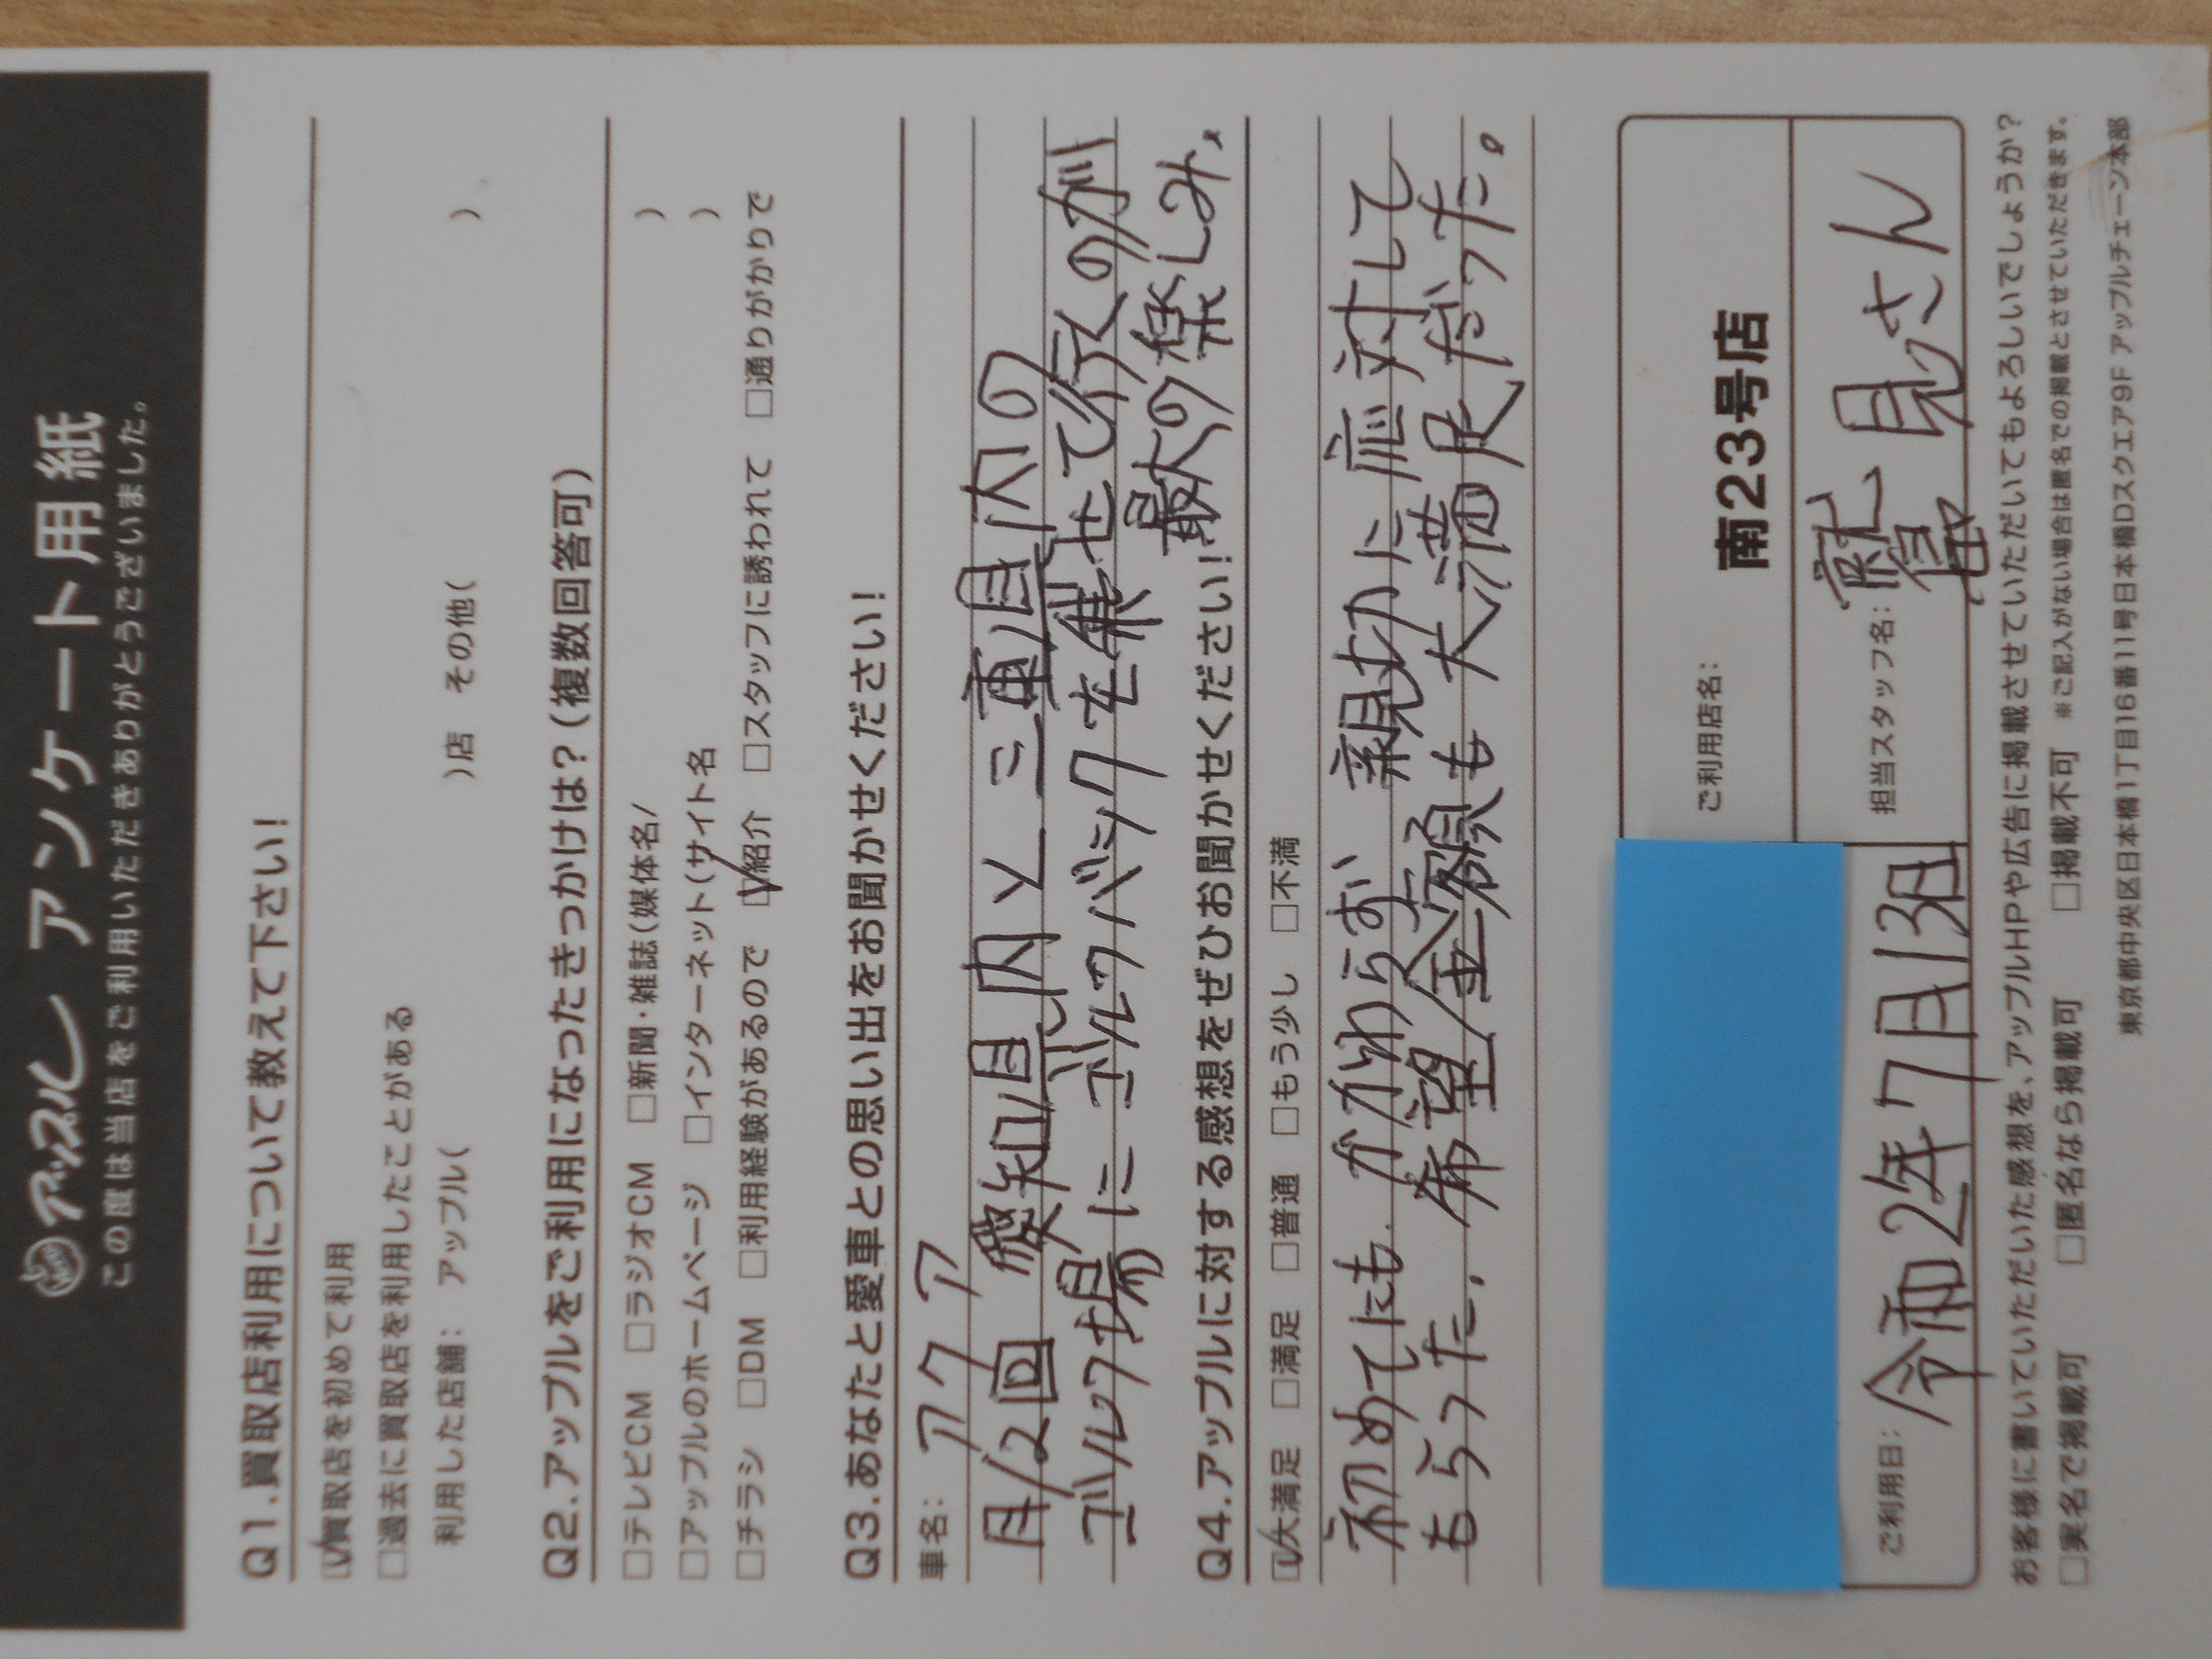 アップル アンケート用紙
この度は当店をご利用いただきありがとうございました。
Q1.買取店利用について教えて下さい!
☑買取店を初めて利用
□過去に買取店を利用したことがある
利用した店舗: アップル( )店 その他( )
Q2.アップルをご利用になったきっかけは?(複数回答可)
□テレビCM □ラジオCM □新聞・雑誌(媒体名/ )
□アップルのホームページ □インターネット(サイト名 )
□チラシ □DM □利用経験があるので ☑紹介 □スタッフに誘われて □通りがかりで
Q3.あなたと愛車との思い出をお聞かせください!
車名: アクア
月/2回 愛知県内と三重県内の
ゴルフ場に ゴルフバックを乗せて行くのが
最大の楽しみ、
Q4.アップルに対する感想をぜひお聞かせください!
☑大満足 □満足 □普通 □もう少し □不満
初めてにも かかわらず 親切に応対して
もらった. 希望金額も 大満足だった。
ご利用店名: 南23号店
ご利用日: 令和2年7月13日
担当スタッフ名: 鷲見さん
お客様に書いていただいた感想を、アップルHPや広告に掲載させていただいてもよろしいでしょうか?
□実名で掲載可 □匿名なら掲載可 □掲載不可 ※ご記入がない場合は匿名での掲載とさせていただきます。
東京都中央区日本橋1丁目16番11号日本橋Dスクエア9F アップルチェーン本部